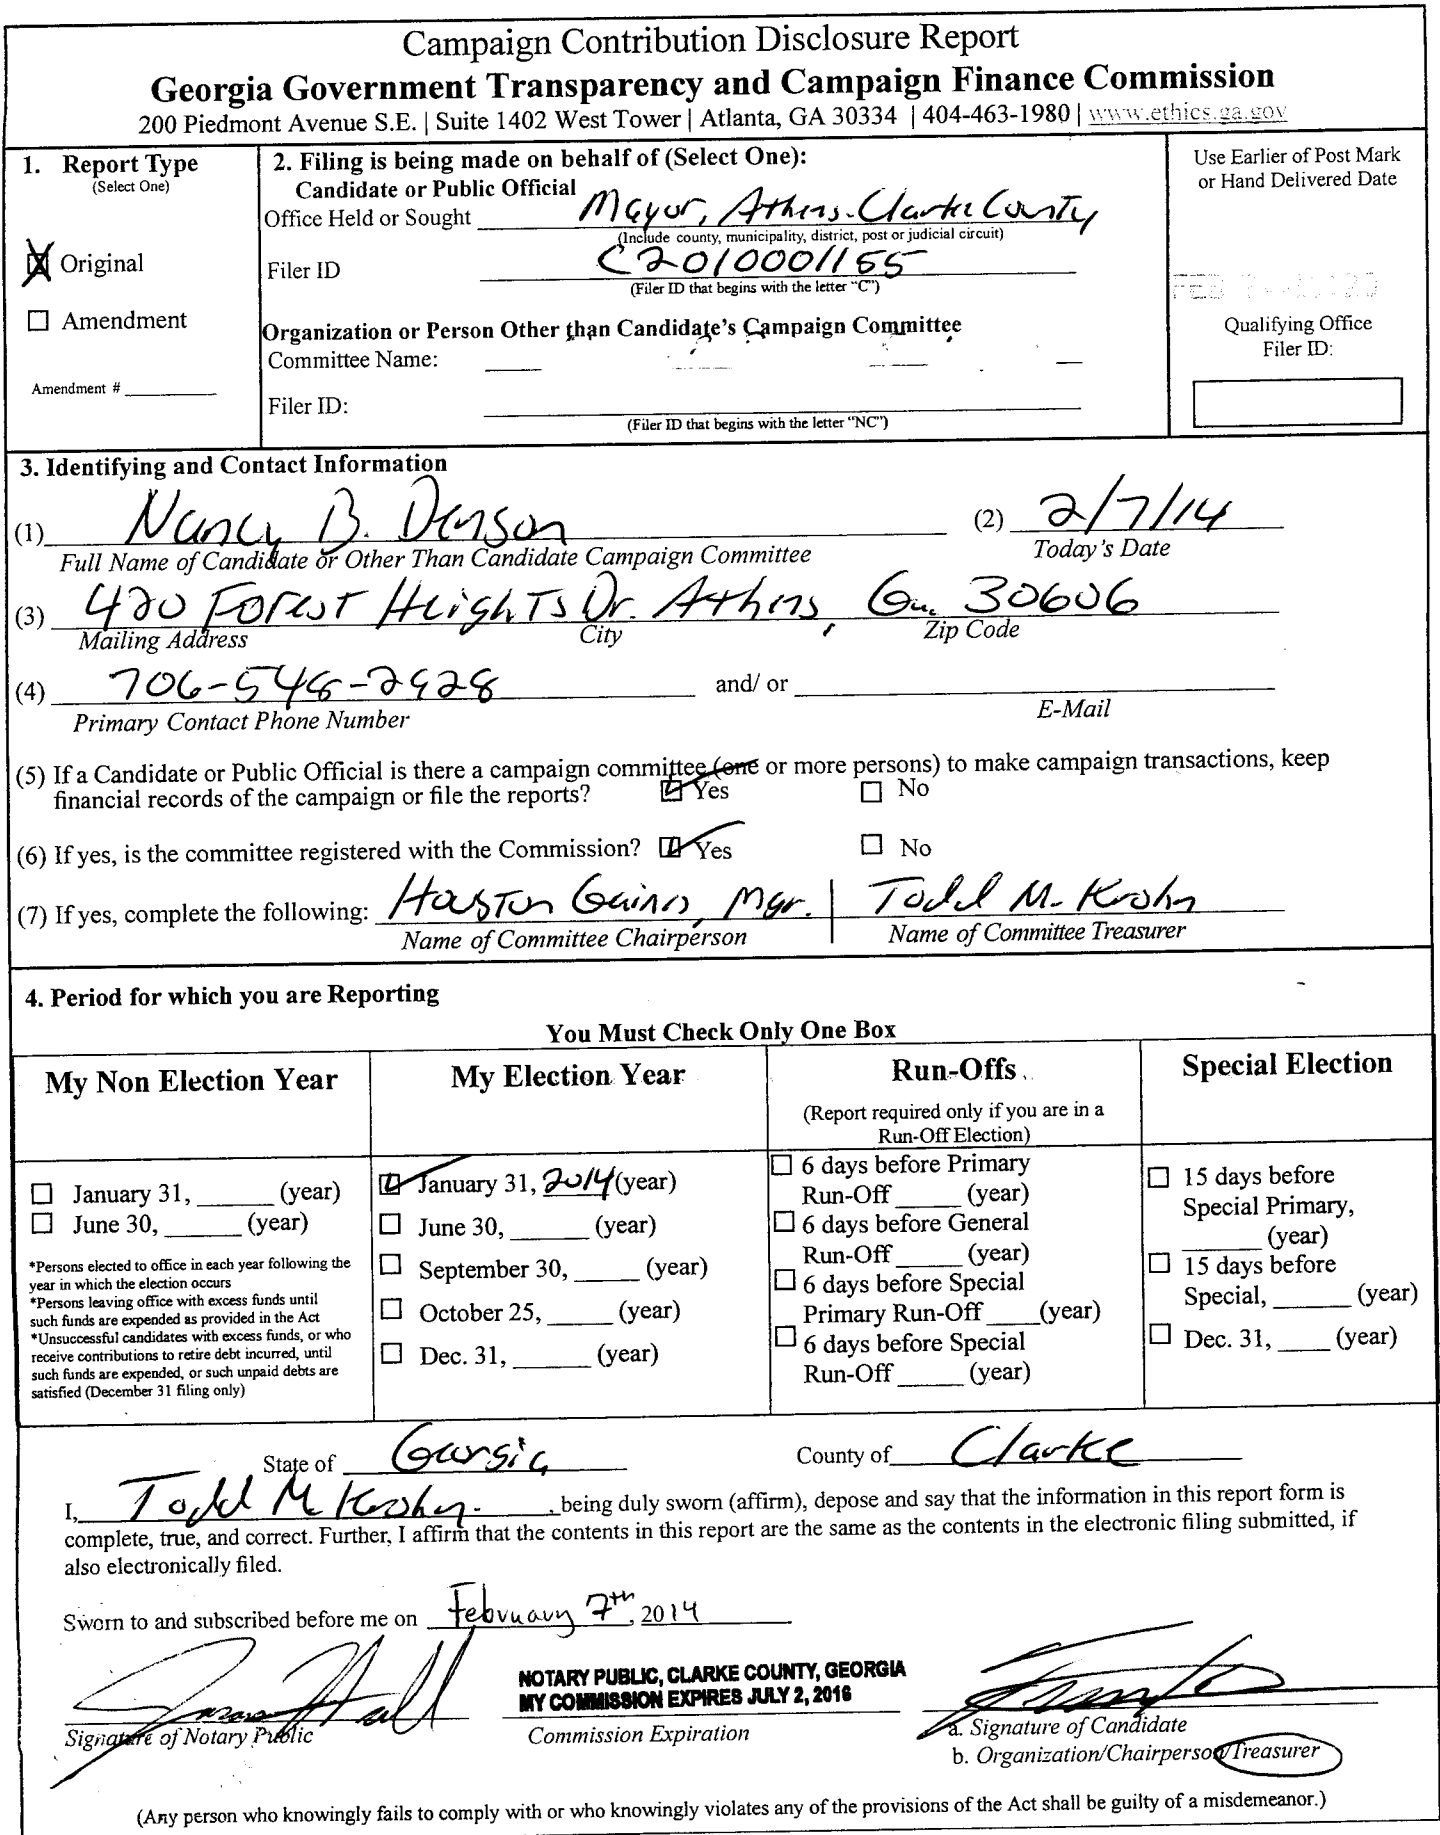 Campaign Contribution Disclosure Report
Georgia Government Transparency and Campaign Finance Commission
200 Piedmont Avenue S.E. | Suite 1402 West Tower | Atlanta, GA 30334 | 404-463-1980 | www.ethics.ga.gov
1. Report Type
(Select One)
Original
Amendment
Amendment # ________
2. Filing is being made on behalf of (Select One):
Candidate or Public Official
Office Held or Sought Mayor, Athens-Clarke County
(Include county, municipality, district, post or judicial circuit)
Filer ID C2010001155
(Filer ID that begins with the letter "C")
Organization or Person Other than Candidate's Campaign Committee
Committee Name:
Filer ID:
(Filer ID that begins with the letter "NC")
Use Earlier of Post Mark
or Hand Delivered Date
FEB
Qualifying Office
Filer ID:
3. Identifying and Contact Information
(1) Nancy B. Denson (2) 2/7/14
Full Name of Candidate or Other Than Candidate Campaign Committee Today's Date
(3) 420 Forest Heights Dr. Athens, Ga. 30606
Mailing Address City Zip Code
(4) 706-548-2928 and/ or
Primary Contact Phone Number E-Mail
(5) If a Candidate or Public Official is there a campaign committee (one or more persons) to make campaign transactions, keep
financial records of the campaign or file the reports? Yes No
(6) If yes, is the committee registered with the Commission? Yes No
(7) If yes, complete the following: Houston Gaines, Mgr. Todd M. Krohn
Name of Committee Chairperson Name of Committee Treasurer
4. Period for which you are Reporting
You Must Check Only One Box
My Non Election Year
January 31, ______ (year)
June 30, ______ (year)
*Persons elected to office in each year following the
year in which the election occurs
*Persons leaving office with excess funds until
such funds are expended as provided in the Act
*Unsuccessful candidates with excess funds, or who
receive contributions to retire debt incurred, until
such funds are expended, or such unpaid debts are
satisfied (December 31 filing only)
My Election Year
January 31, 2014 (year)
June 30, ______ (year)
September 30, _____ (year)
October 25, _____ (year)
Dec. 31, ______ (year)
Run-Offs
(Report required only if you are in a
Run-Off Election)
6 days before Primary
Run-Off _____ (year)
6 days before General
Run-Off _____ (year)
6 days before Special
Primary Run-Off ____(year)
6 days before Special
Run-Off _____ (year)
Special Election
15 days before
Special Primary,
______ (year)
15 days before
Special, ______ (year)
Dec. 31, ____ (year)
State of Georgia County of Clarke
I, Todd M Krohn, being duly sworn (affirm), depose and say that the information in this report form is
complete, true, and correct. Further, I affirm that the contents in this report are the same as the contents in the electronic filing submitted, if
also electronically filed.
Sworn to and subscribed before me on February 7th, 2014
NOTARY PUBLIC, CLARKE COUNTY, GEORGIA
MY COMMISSION EXPIRES JULY 2, 2016
Signature of Notary Public Commission Expiration a. Signature of Candidate
b. Organization/Chairperson/Treasurer
(Any person who knowingly fails to comply with or who knowingly violates any of the provisions of the Act shall be guilty of a misdemeanor.)